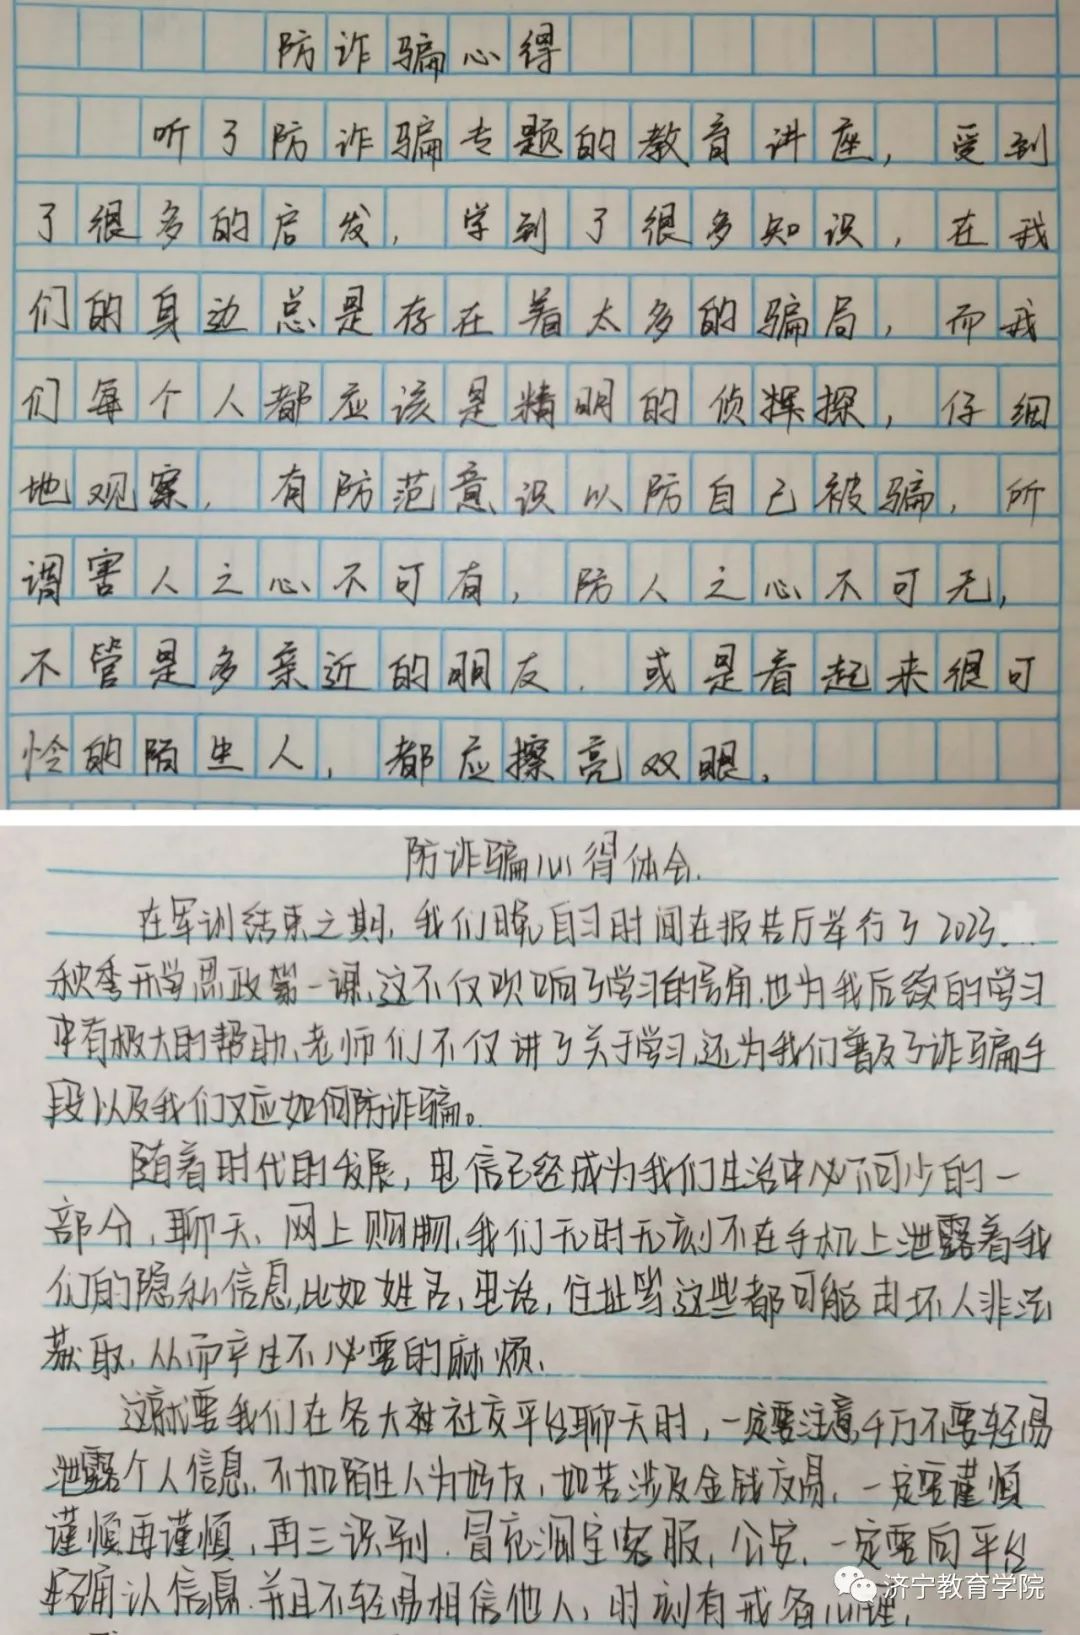 防诈骗心得
听了防诈骗专题的教育讲座，受到
了很多的启发，学到了很多知识，在我
们的身边总是存在着太多的骗局，而我
们每个人都应该是精明的侦探，仔细
地观察，有防范意识以防自己被骗，所
谓害人之心不可有，防人之心不可无，
不管是多亲近的朋友，或是看起来很可
怜的陌生人，都应擦亮双眼。
防诈骗心得体会.
在军训结束之期，我们晚自习时间在报告厅举行了2023
秋季开学思政第一课，这不仅吹响了学习的号角，也为我后续的学习
中有极大的帮助、老师们不仅讲了关于学习，还为我们普及了诈骗手
段以及我们应如何防诈骗。
随着时代的发展，电信已经成为我们生活中必不可少的一
部分，聊天、网上购物，我们无时无刻不在手机上泄露着我
们的隐私信息，比如姓名，电话，住址等，这些都可能由坏人非法
获取，从而产生不必要的麻烦，
这就要我们在各大社交平台聊天时，一定要注意千万不要轻易
泄露个人信息，不加陌生人为好友，如若涉及金钱交易，一定要谨慎
谨慎再谨慎，再三识别，冒充淘宝客服，公安，一定要向平台
确认信息，并且不轻易相信他人，时刻有戒备心理，
济宁教育学院